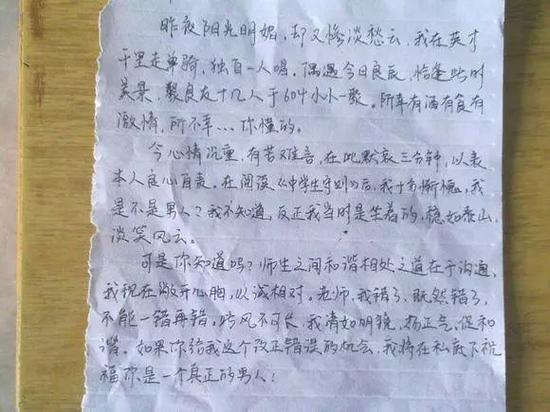 昨夜阳光明媚，却又惨淡愁云，我在英才
千里走单骑，独自一人喝，偶遇今日良辰，恰逢此时
美景，聚良友十几人于604小小一聚。所幸有酒有食有
激情，所不幸…你懂的。
今心情沉重，有苦难言，在此默哀三分钟，以表
本人良心自责。在阅读《中学生守则》后，我十分惭愧，我
是不是男人？我不知道，反正我当时是坐着的，稳如泰山，
谈笑风云。
可是你知道吗？师生之间和谐相处之道在于沟通，
我现在敞开心胸，以诚相对。老师，我错了，既然错了，
不能一错再错，歪风不可长，我清如明镜，扬正气，促和
谐。如果你给我这个改正错误的机会，我将在私底下祝
福你是一个真正的男人！